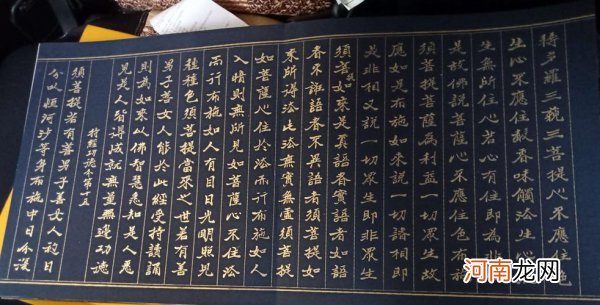 耨多羅三藐三菩提心不應住色
生心不應住聲香味觸法生心
生無所住心若心有住即為非
是故佛說菩薩心不應住色布施
須菩提菩薩為利益一切眾生故
應如是布施如來說一切諸相即
是非相又說一切眾生即非眾生
須菩提如來是真語者實語者如語
者不誑語者不異語者須菩提如
來所得法此法無實無虛須菩提
如菩薩心住於法而行布施如人
入暗則無所見如菩薩心不住法
而行布施如人有目日光明照見
種種色須菩提當來之世若有善
男子善女人能於此經受持讀誦
則為如來以佛智慧悉知是人悉
見是人皆得成就無量無邊功德
持經功德分第十五
須菩提若有善男子善女人初日
分以恒河沙等身布施中日分復
河南龙网